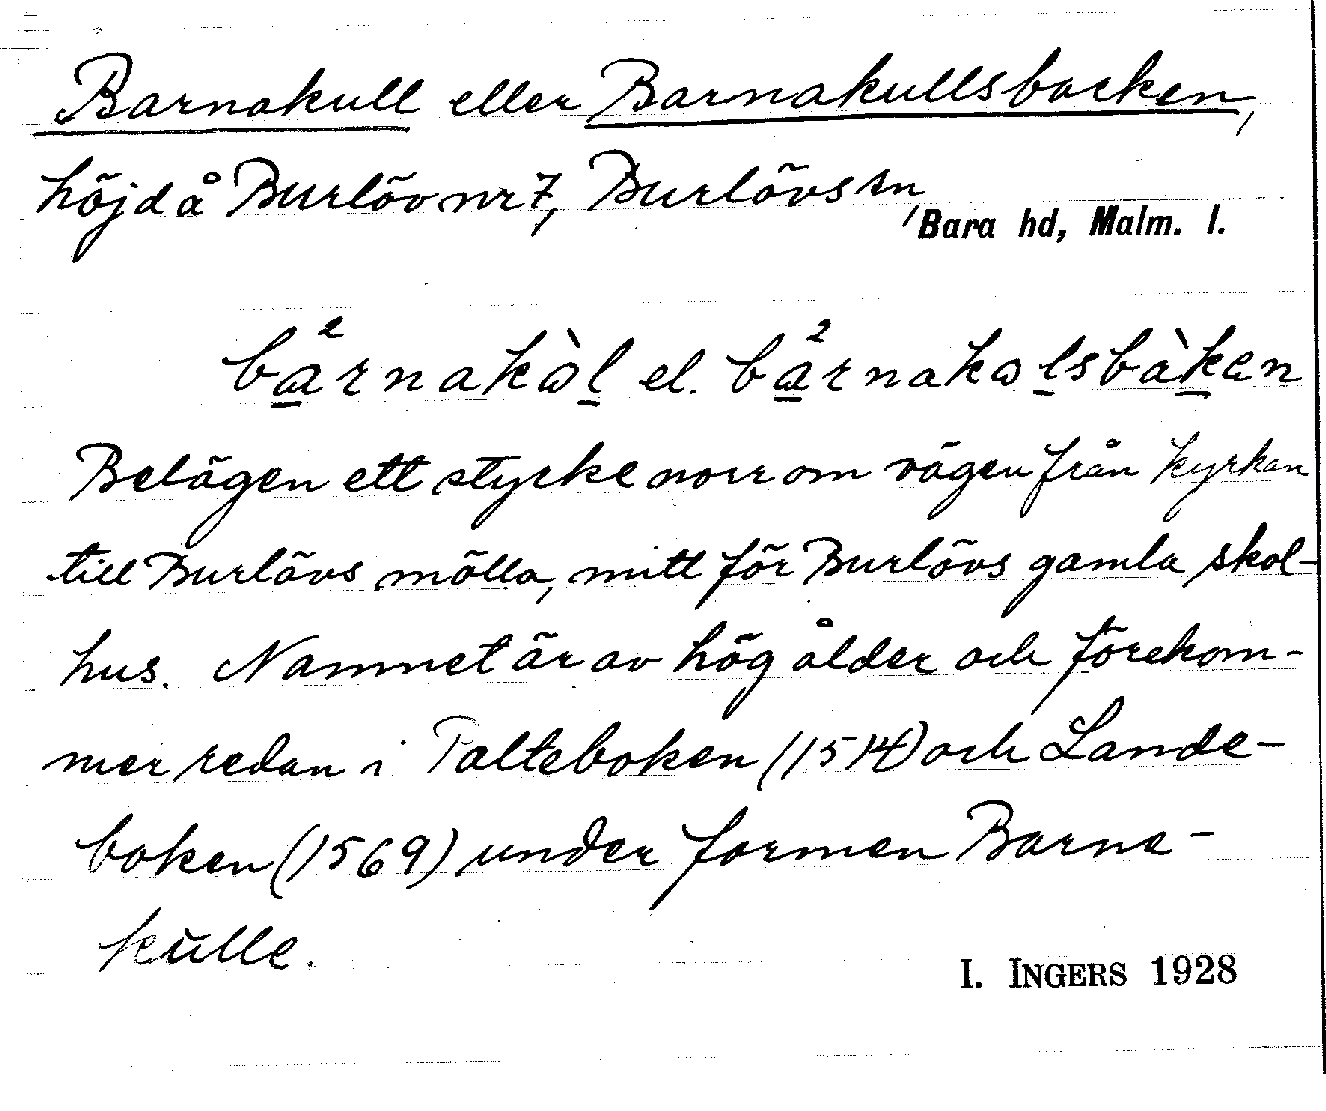 Barnakull eller Barnakullsbacken,
höjd å Burlöv nr 7, Burlövs sn
/Bara hd, Malm. l.
bå²rnakàl el. bå²rnakalsbàkan
Belägen ett stycke norr om vägen från kyrkan
till Burlövs mölla, mitt för Burlövs gamla skol-
hus. Namnet är av hög ålder och förekom-
mer redan i Palteboken (1514) och Lande-
boken (1569) under formen Barne-
kulle.
I. INGERS 1928